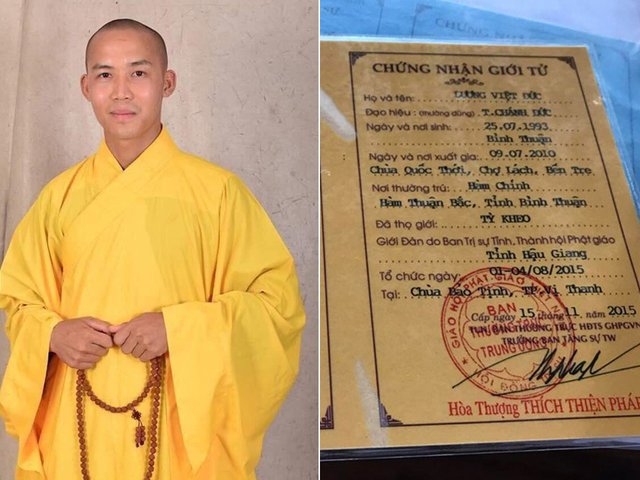 CHỨNG NHẬN
CHỨNG NHẬN GIỚI TỬ
Họ và tên: LƯƠNG VIỆT ĐỨC
Đạo hiệu : (thường dùng) T.CHÁNH ĐỨC
Ngày và nơi sinh: 25.07.1993
Bình Thuận
Ngày và nơi xuất gia: 09.07.2010
Chùa Quốc Thới, Chợ Lách, Bến Tre
Nơi thường trú: Hàm Chính
Hàm Thuận Bắc, Tỉnh Bình Thuận
Đã thọ giới: TỲ KHEO
Giới Đàn do Ban Trị sự Tỉnh, Thành hội Phật giáo
Tỉnh Hậu Giang
Tổ chức ngày: 01-04/08/2015
Tại: Chùa Bảo Tịnh, TP Vị Thanh
Cấp ngày 15 tháng 11 năm 2015
TUN BAN THƯỜNG TRỰC HĐTS GHPGVN
TRƯỞNG BAN TĂNG SỰ TW
GIÁO HỘI PHẬT GIÁO VIỆT
BAN
TRUNG ƯƠNG
HỘI ĐỒNG
Hòa Thượng THÍCH THIỆN PHÁP